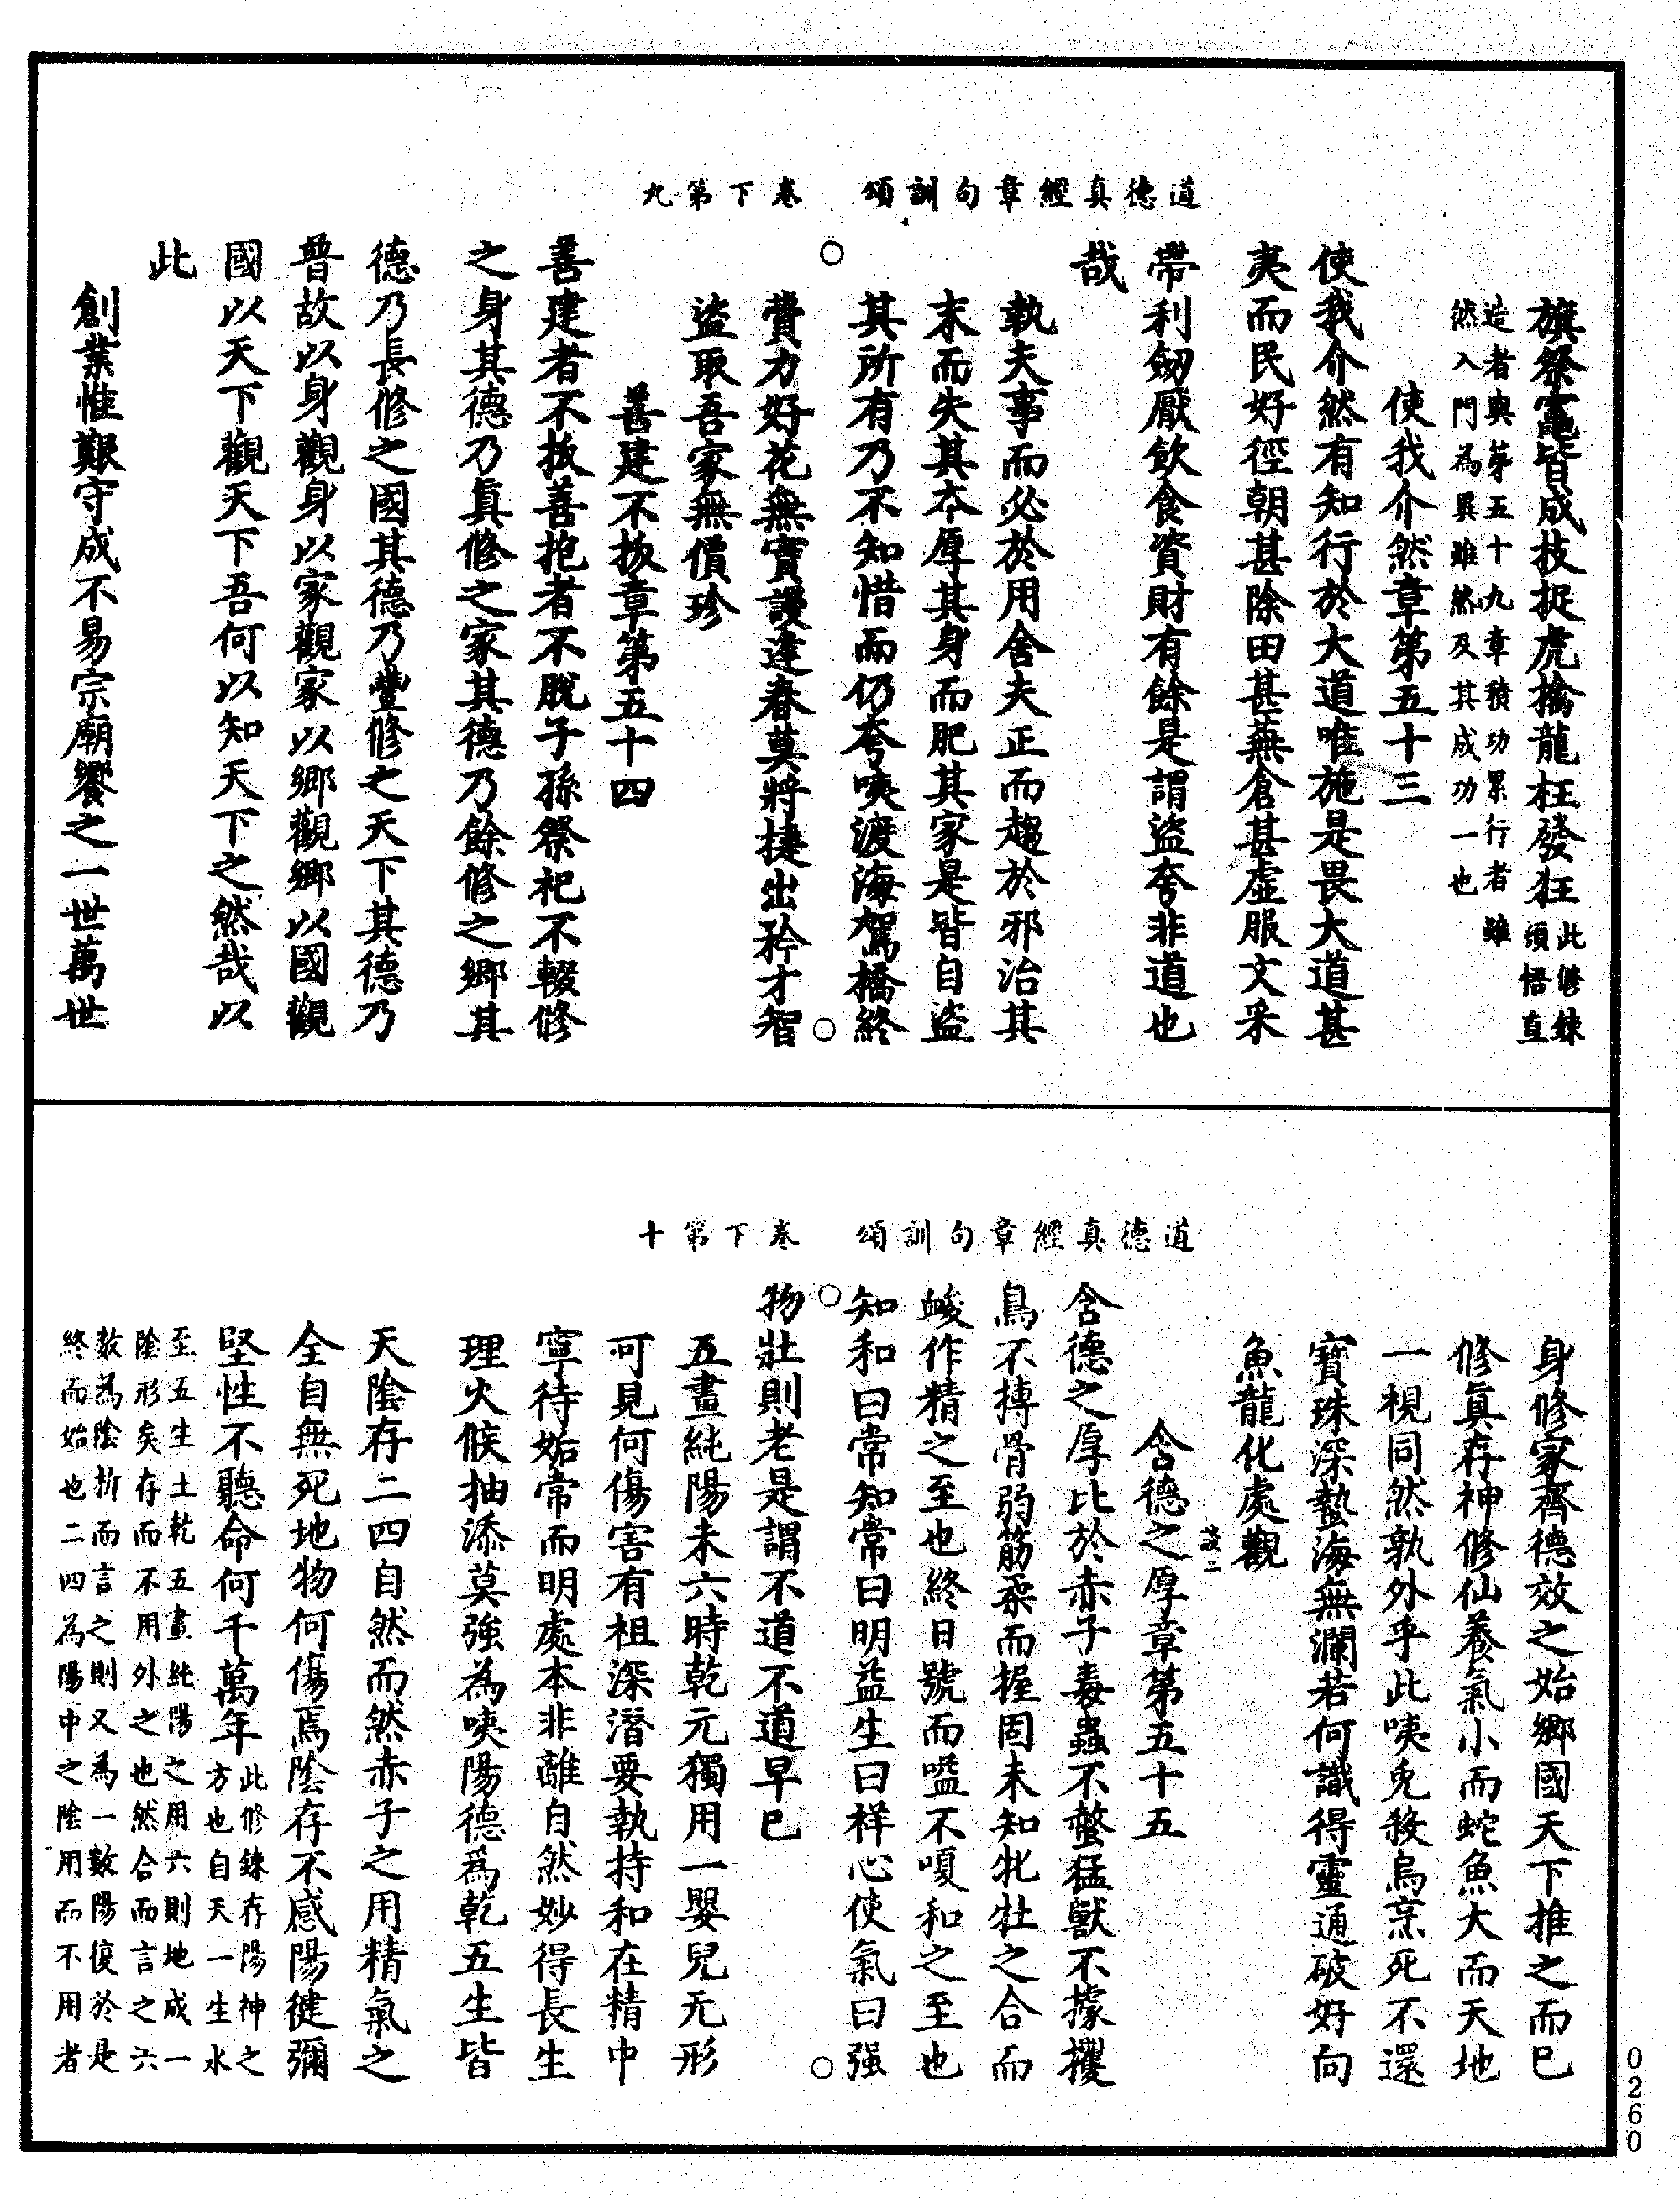 道德真經章句訓頌　卷下第九
旗祭竈皆成技捉虎擒龍枉發狂此修鍊頓悟直
造者與第五十九章積功累行者雖
然入門為異雖然及其成功一也
使我介然章第五十三
使我介然有知行於大道唯施是畏大道甚
夷而民好徑朝甚除田甚蕪倉甚虛服文采
帶利劒厭飲食資財有餘是謂盜夸非道也
哉
執夫事而必於用舍夫正而趨於邪治其
末而失其本厚其身而肥其家是皆自盜
其所有乃不知惜而仍夸咦渡海駕橋終
費力好花無實謾逢春莫將捷出矜才智
盜取吾家無價珍
善建不拔章第五十四
善建者不拔善抱者不脫子孫祭祀不輟修
之身其德乃真修之家其德乃餘修之鄉其
德乃長修之國其德乃豐修之天下其德乃
普故以身觀身以家觀家以鄉觀鄉以國觀
國以天下觀天下吾何以知天下之然哉以
此
創業惟艱守成不易宗廟饗之一世萬世
道德真經章句訓頌　卷下第十
身修家齊德效之始鄉國天下推之而已
修真存神修仙養氣小而蛇魚大而天地
一視同然孰外乎此咦兔殺烏烹死不還
寶珠深蟄海無瀾若何識得靈通破好向
魚龍化處觀
含德之厚章第五十五
含德之厚比於赤子毒蟲不螫猛獸不據攫
鳥不搏骨弱筋柔而握固未知牝牡之合而
峻作精之至也終日號而嗌不嗄和之至也
知和曰常知常曰明益生曰祥心使氣曰强
物壯則老是謂不道不道早已
五畫純陽未六時乾元獨用一嬰兒无形
可見何傷害有祖深潛要執持和在精中
寧待姤常而明處本非離自然妙得長生
理火候抽添莫強為咦陽德爲乾五生皆
天陰存二四自然而然赤子之用精氣之
全自無死地物何傷焉陰存不感陽健彌
堅性不聽命何千萬年此修鍊存陽神之
方也自天一生水
至五生土乾五畫純陽之用六則地成一
陰形矣存而不用外之也然合而言之六
數為陰折而言之則又為一數陽復於是
終而始也二四為陽中之陰用而不用者
0260